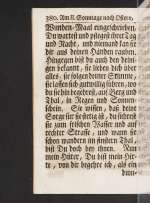 380. Am II. Sonntage nach Ostern,
Wunden-Maal eingeschrieben,
Du wartest und pflegest ihrer Tag
und Nacht, und niemand kan sie
dir aus deinen Händen rauben.
Hingegen bist du auch den deini-
gen bekannt, sie lieben dich über
alles, sie folgen deiner Stimme,
sie lassen sich gutwillig führen, wo
du sie hin begehrest, auf Berg und
Thal, in Regen und Sonnen-
schein. Sie wissen, daß deine
Sorge für sie stetig ist, du führest
sie zum frischen Wasser und auf
rechter Strasse, und wann sie
schon wandern im finstern Thal,
bist Du doch bey ihnen. Nun
mein Hüter, Du bist mein Hir-
te, von dir begehre ich, als ein